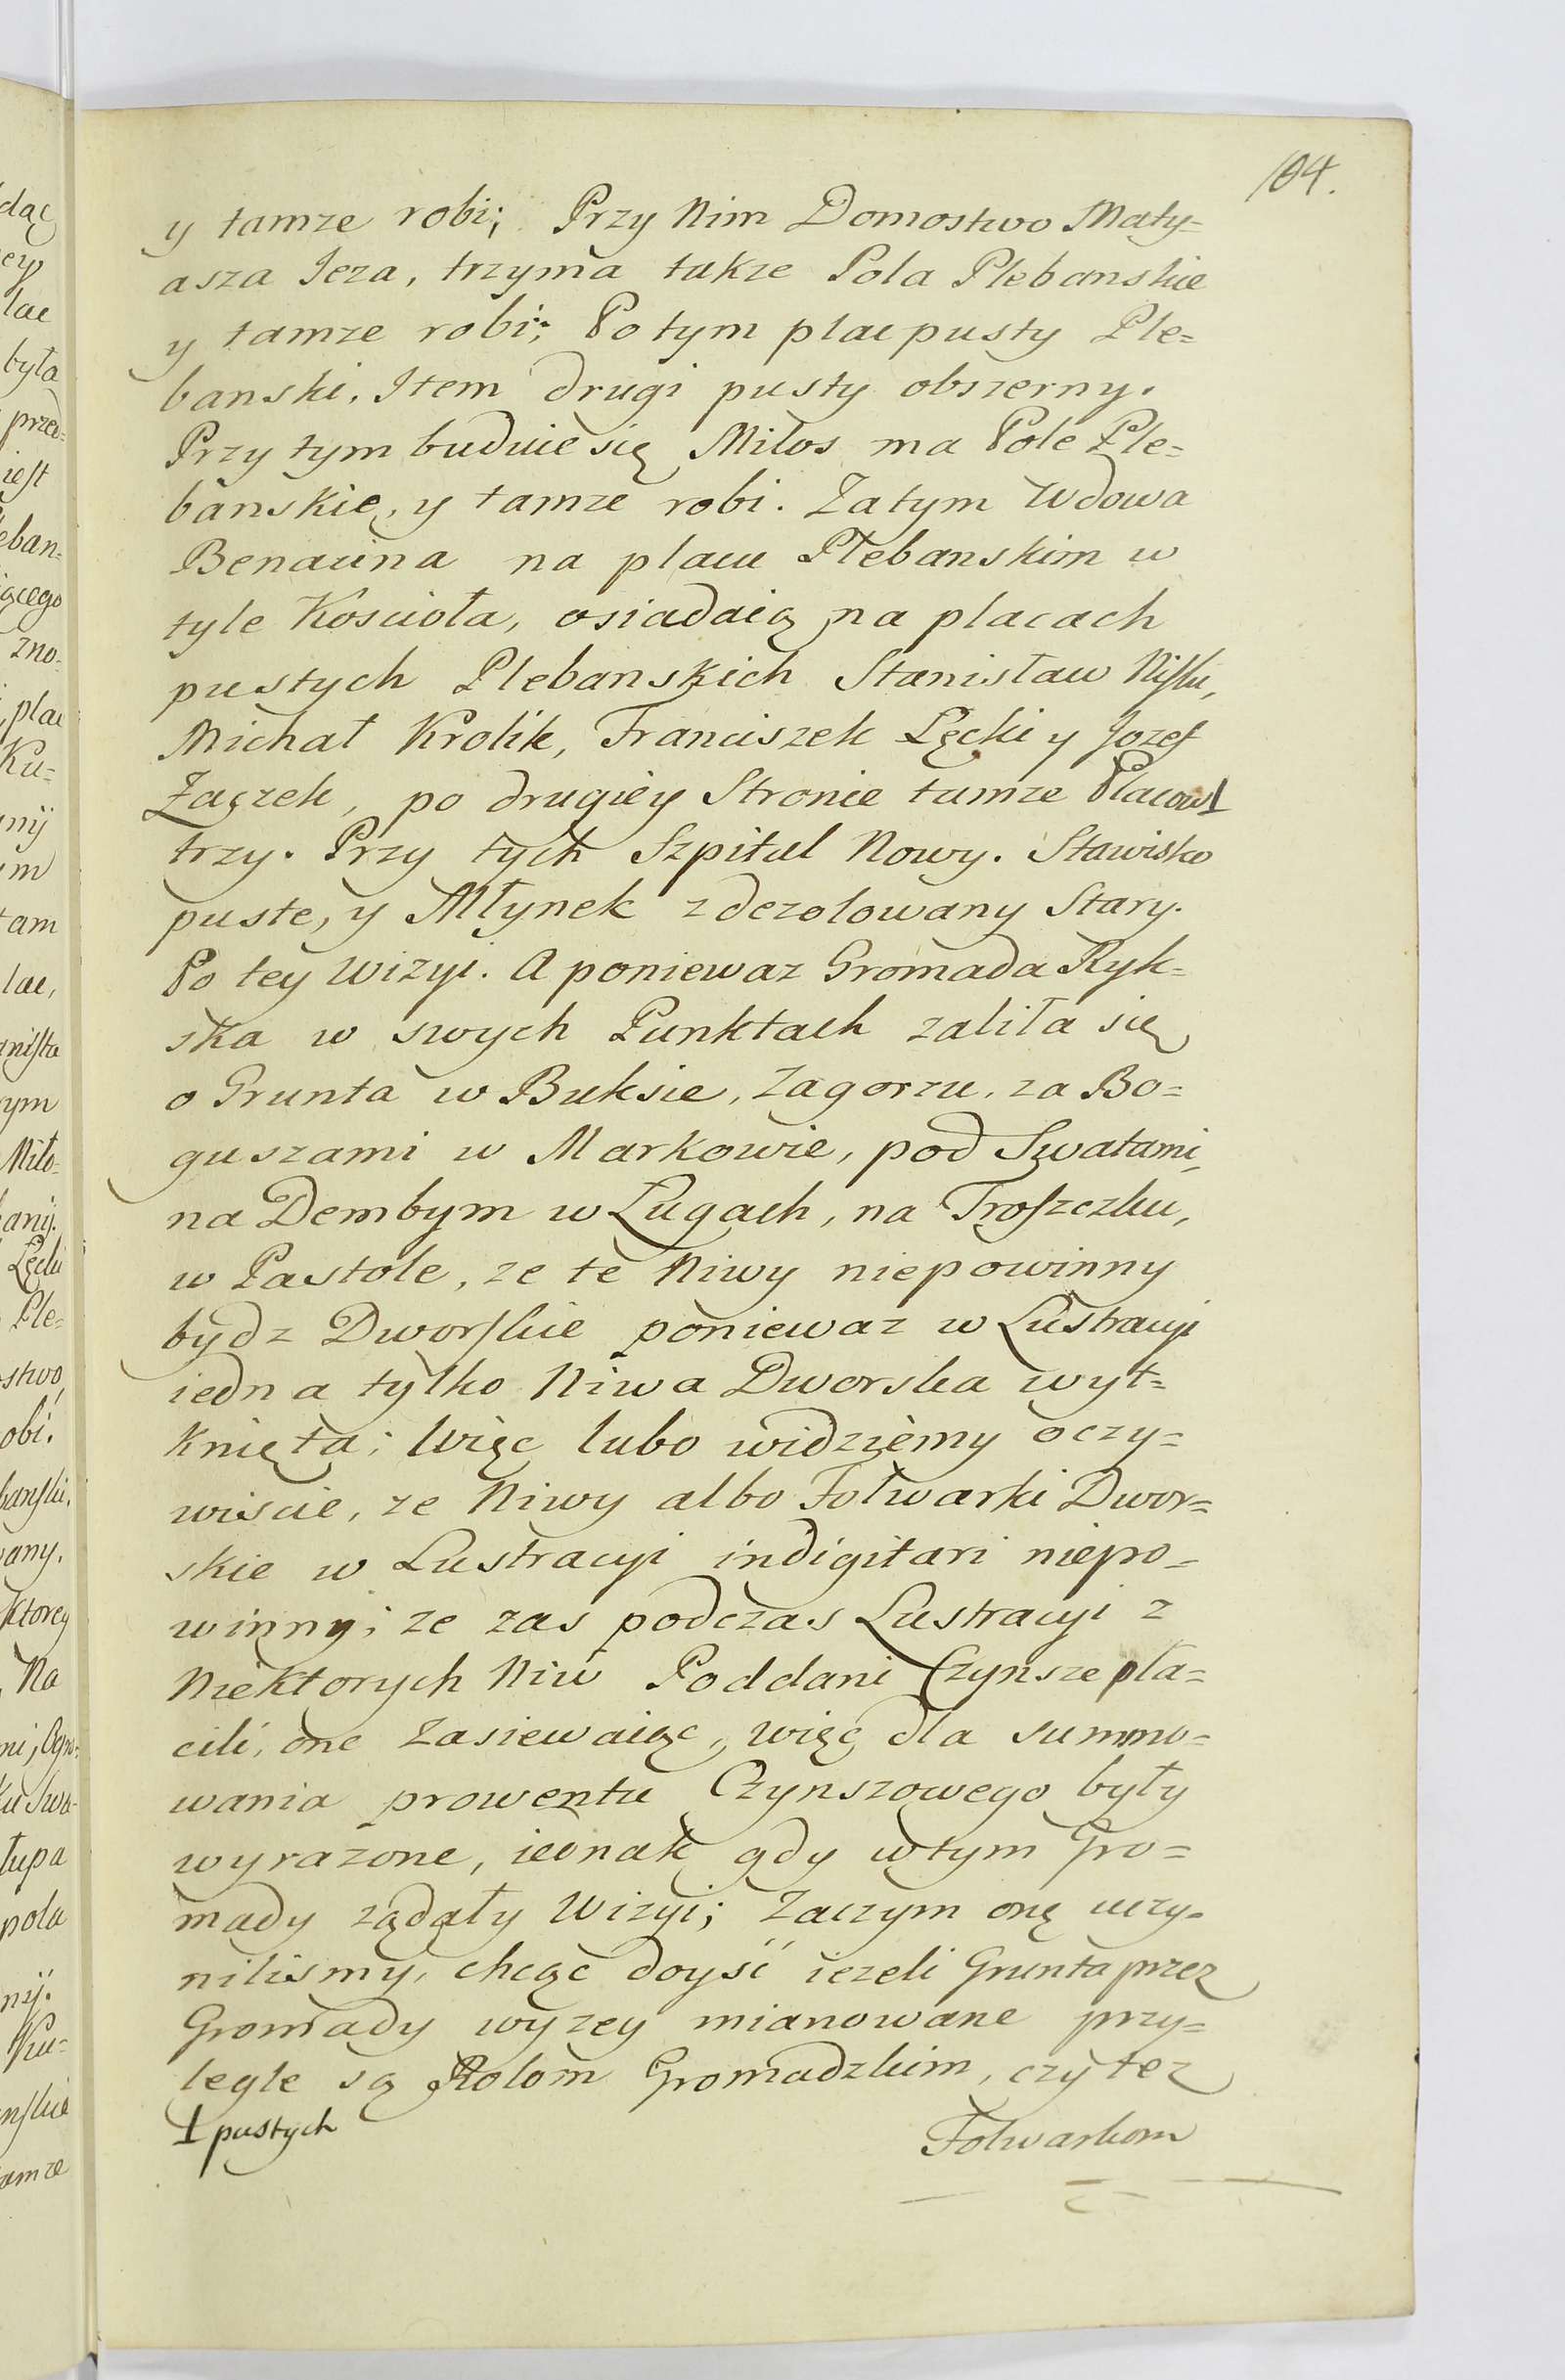 104.
y tamze robi; Przy Nim Domostwo Maty=
asza Jeza, trzyma takze Pola Plebanskie
y tamze robi; Po tym plac pusty Ple=
banski. Item drugi pusty obszerny.
Przy tym buduie się Miłos ma Pole Ple=
banskie, y tamze robi. Zatym Wdowa
na placu Plebanskim w
tyle Koscioła, osiadaią na placach
pustych Plebanskich Stanisław
Michał Krolik, Franciszek Łęcki y Jozef
po drugiey Stronie tamze Placow ⊥
trzy. Przy tych Szpital Nowy. Stawisko
puste, y Młynek zdezolowany Stary.
Po tey Wizyi. A poniewaz Gromada Ryk=
ska w swych Punktach zaliła się
o Grunta w Buksie, Zagorzu, za Bo=
guszami w Markowie, pod Swatami,
na Dembym w Ługach, na Troszczku,
w Pastole, ze te Niwy niepowinny
bydz Dworskie poniewaz w Lustracyi
iedna tylko Niwa Dworska wyt=
knięta; Więc lubo widziemy oczy=
wiscie, ze Niwy albo Folwarki Dwor=
skie w Lustracyi indigitari niepo=
winny; ze zas podczas Lustracyi z
Niektorych Niw Poddani Czynsze pła=
cili, one zasiewaiąc, więc dla summo=
wania prowentu Czynszowego były
wyrazone, iednak gdy w tym Gro=
mady ządały Wizyi; Zaczym onę uczy=
nilismy, chcąc doyść iezeli Grunta przez
Gromady wyzey mianowane przy=
legle są Rolom Gromadzkim, czy tez
⊥ pustych
Folwarkom